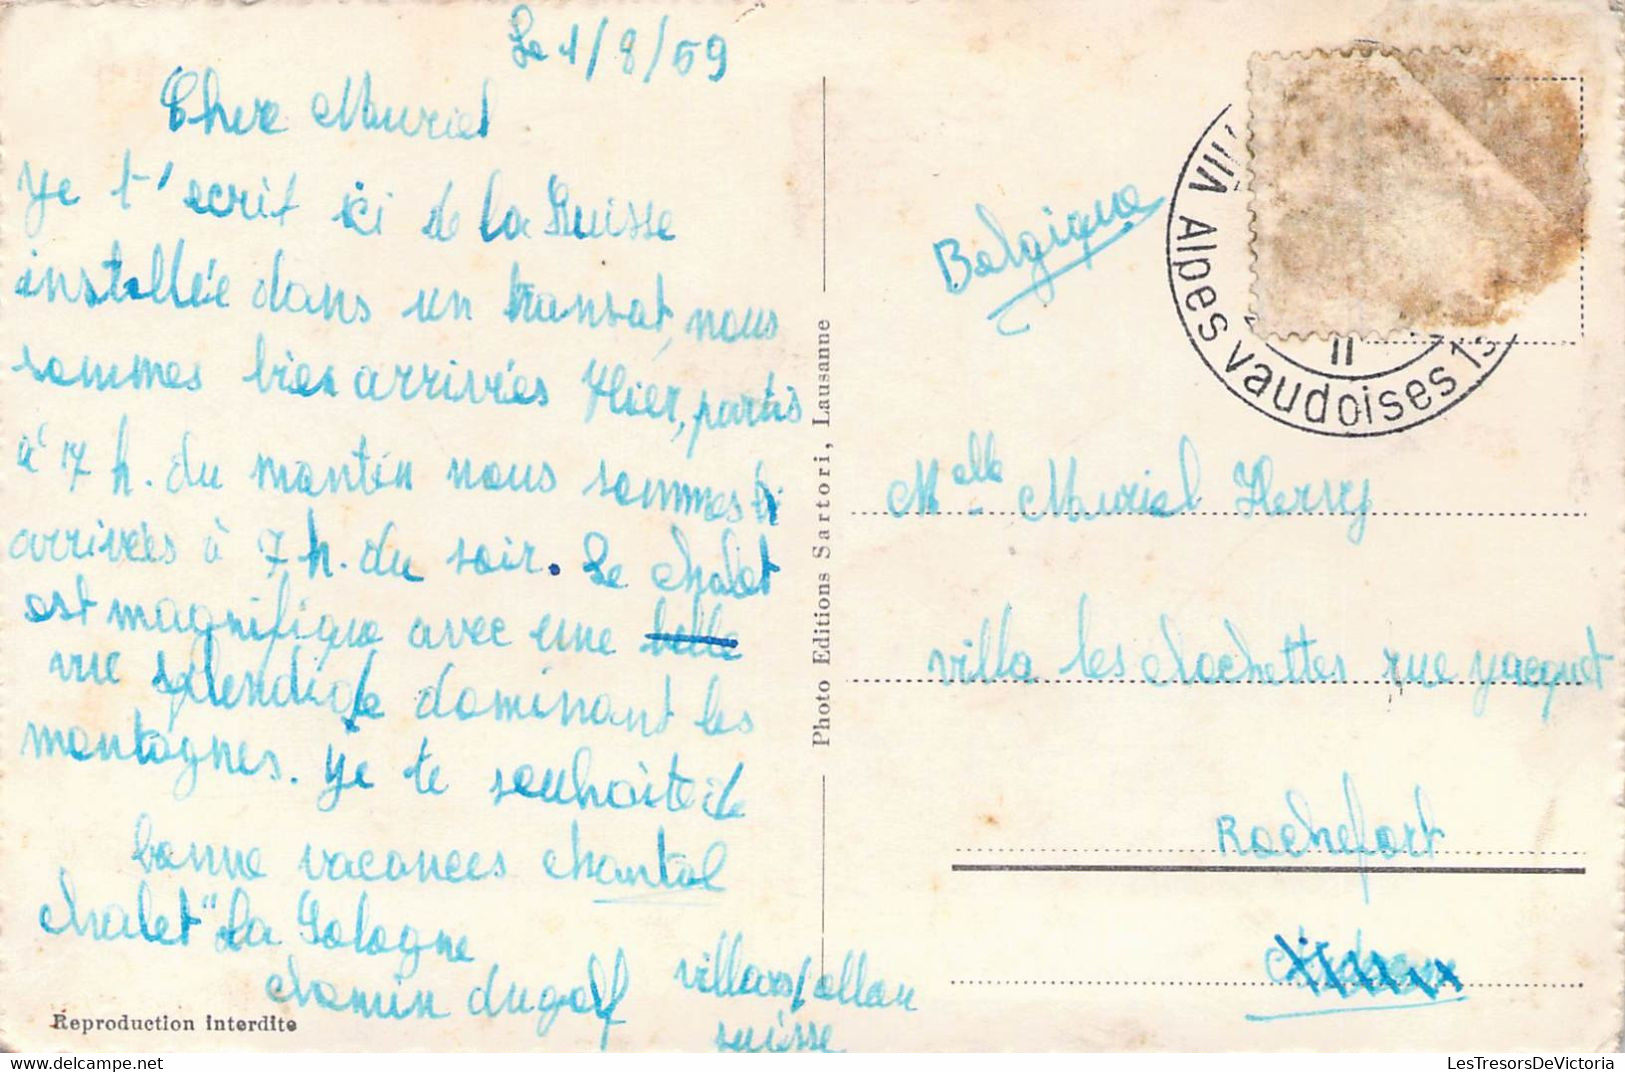 Le 1/8/59
Chère Muriel
Je t'écrit ici de la Suisse
installée dans un transat, nous
sommes bien arrivées Hier, partis
à 7 h. du matin nous sommes
arrivées à 7 h. du soir. Le chalet
est magnifique avec une belle
vue splendide dominant les
montagnes. Je te souhaite de
bonne vacances Chantal
Chalet "La Sologne
chemin du golf villars/ollon
suisse
Reproduction interdite
Photo Editions Sartori, Lausanne
Belgique
VILL
Alpes vaudoises
II
Melle Muriel Hervy
villa les clochettes rue Jacquet
Rochefort
LesTresorsDeVictoria